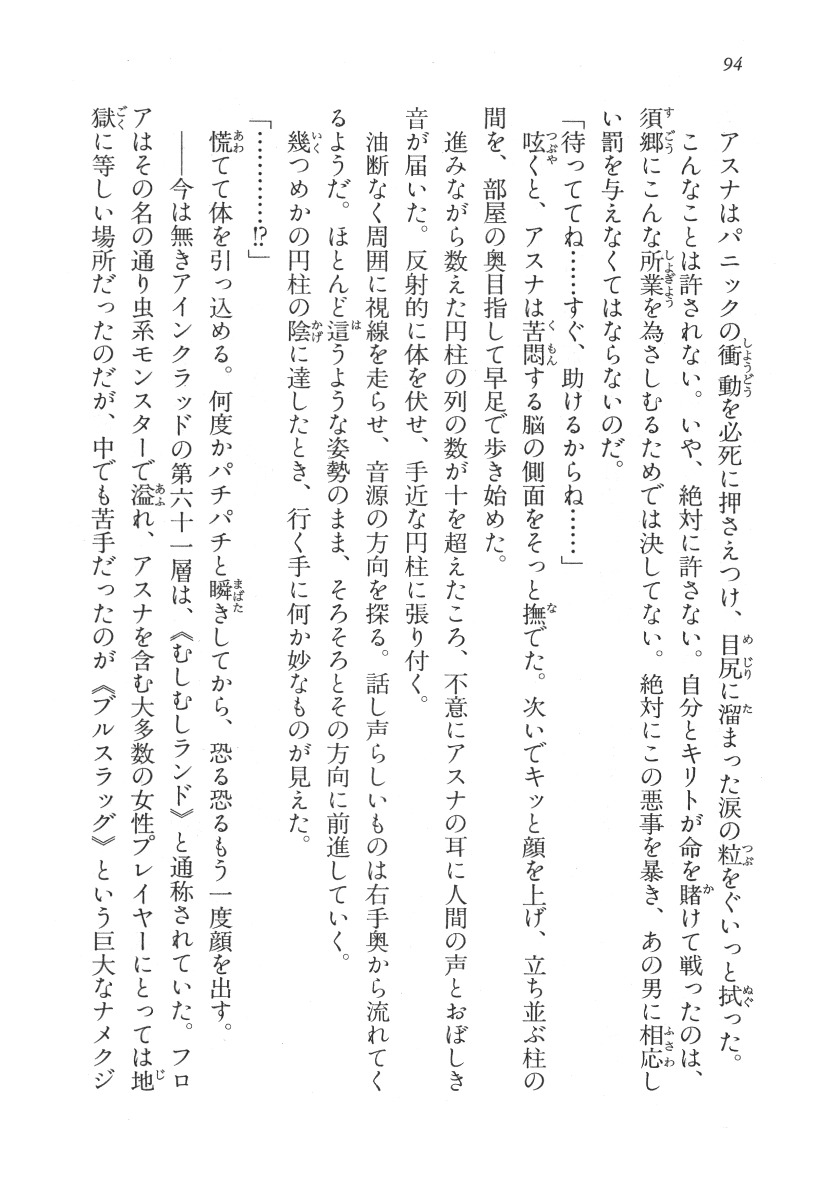 94
アスナはパニックの衝動を必死に押さえつけ、目尻に溜まった涙の粒をぐいっと拭った。
こんなことは許されない。いや、絶対に許さない。自分とキリトが命を賭けて戦ったのは、
須郷にこんな所業を為さしむるためでは決してない。絶対にこの悪事を暴き、あの男に相応し
い罰を与えなくてはならないのだ。
「待っててね……すぐ、助けるからね……」
呟くと、アスナは苦悶する脳の側面をそっと撫でた。次いでキッと顔を上げ、立ち並ぶ柱の
間を、部屋の奥目指して早足で歩き始めた。
進みながら数えた円柱の列の数が十を超えたころ、不意にアスナの耳に人間の声とおぼしき
音が届いた。反射的に体を伏せ、手近な円柱に張り付く。
油断なく周囲に視線を走らせ、音源の方向を探る。話し声らしいものは右手奥から流れてく
るようだ。ほとんど這うような姿勢のまま、そろそろとその方向に前進していく。
幾つめかの円柱の陰に達したとき、行く手に何か妙なものが見えた。
「…………⁉」
慌てて体を引っ込める。何度かパチパチと瞬きしてから、恐る恐るもう一度顔を出す。
――今は無きアインクラッドの第六十一層は、《むしむしランド》と通称されていた。フロ
アはその名の通り虫系モンスターで溢れ、アスナを含む大多数の女性プレイヤーにとっては地
獄に等しい場所だったのだが、中でも苦手だったのが《ブルスラッグ》という巨大なナメクジ